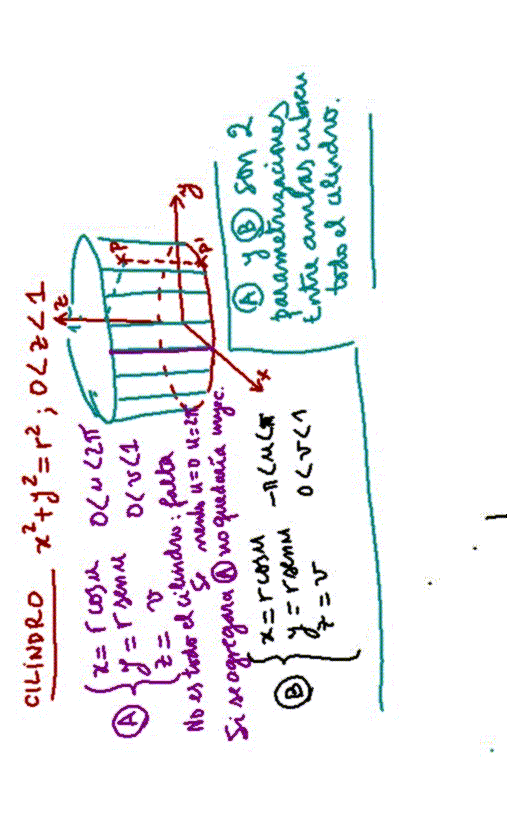 CILINDRO x²+y²=r² ; 0<z<1
Ⓐ { x = r cos u   0<u<2π
y = r sen u   0<v<1
z = v
No es todo el cilindro: falta
Si u=0 u=2π
Si se agregara Ⓐ no quedaría inyec.
Ⓑ { x = r cos u   -π<u<π
y = r sen u   0<v<1
z = v
z
P
y
P'
x
Ⓐ y Ⓑ son 2
parametrizaciones
Entre ambas cubren
todo el cilindro.